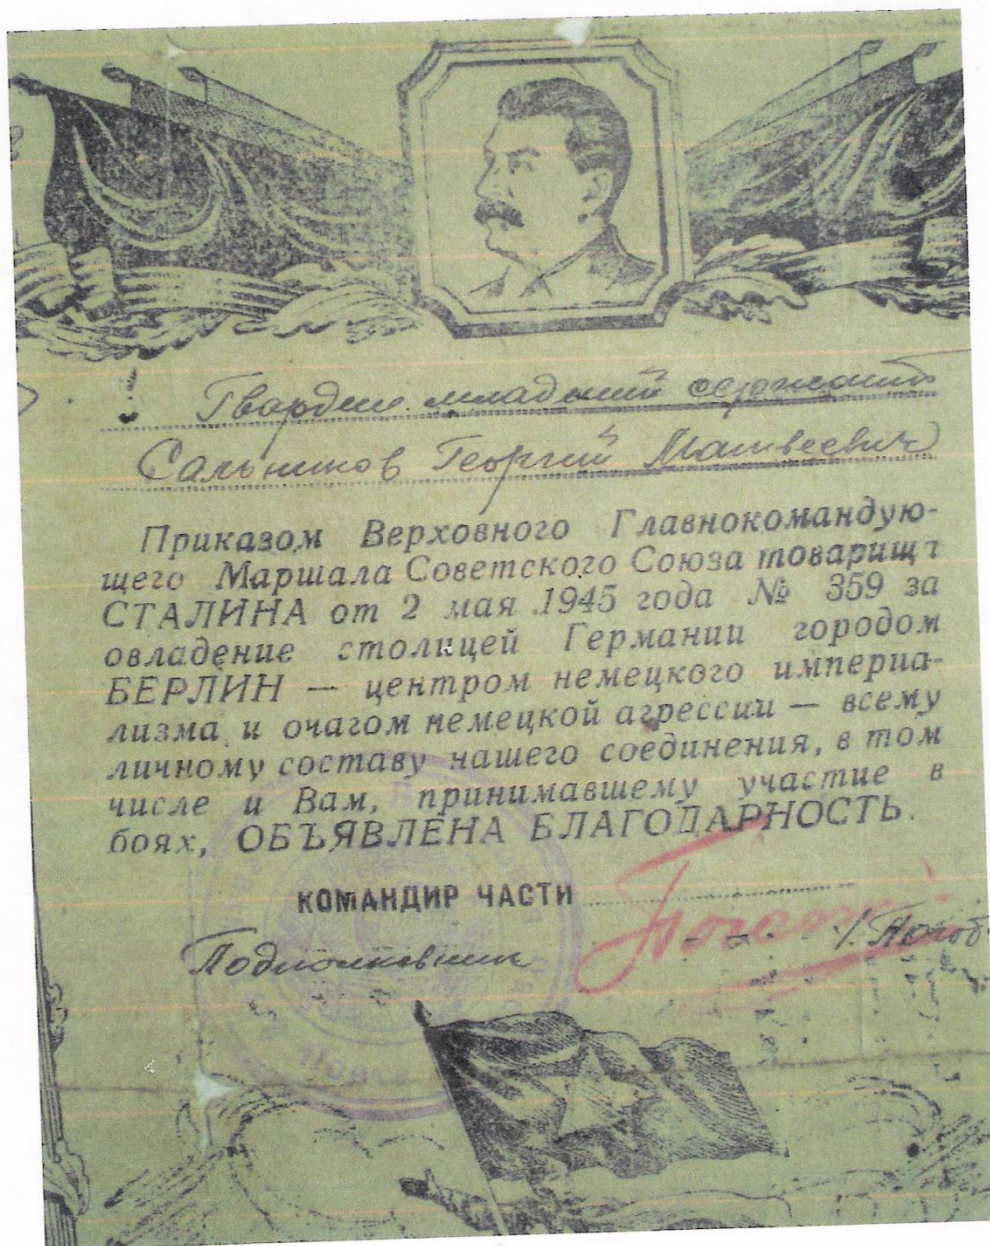 Гвардии младший сержант
Сальников Георгий Матвеевич
Приказом Верховного Главнокомандую-
щего Маршала Советского Союза товарища
СТАЛИНА от 2 мая 1945 года № 359 за
овладение столицей Германии городом
БЕРЛИН — центром немецкого империа-
лизма и очагом немецкой агрессии — всему
личному составу нашего соединения, в том
числе и Вам, принимавшему участие в
боях, ОБЪЯВЛЕНА БЛАГОДАРНОСТЬ.
КОМАНДИР ЧАСТИ
Подполковник